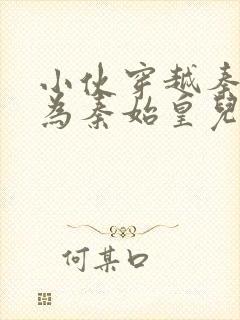 小伙穿越秦
為秦始皇兒
何某口